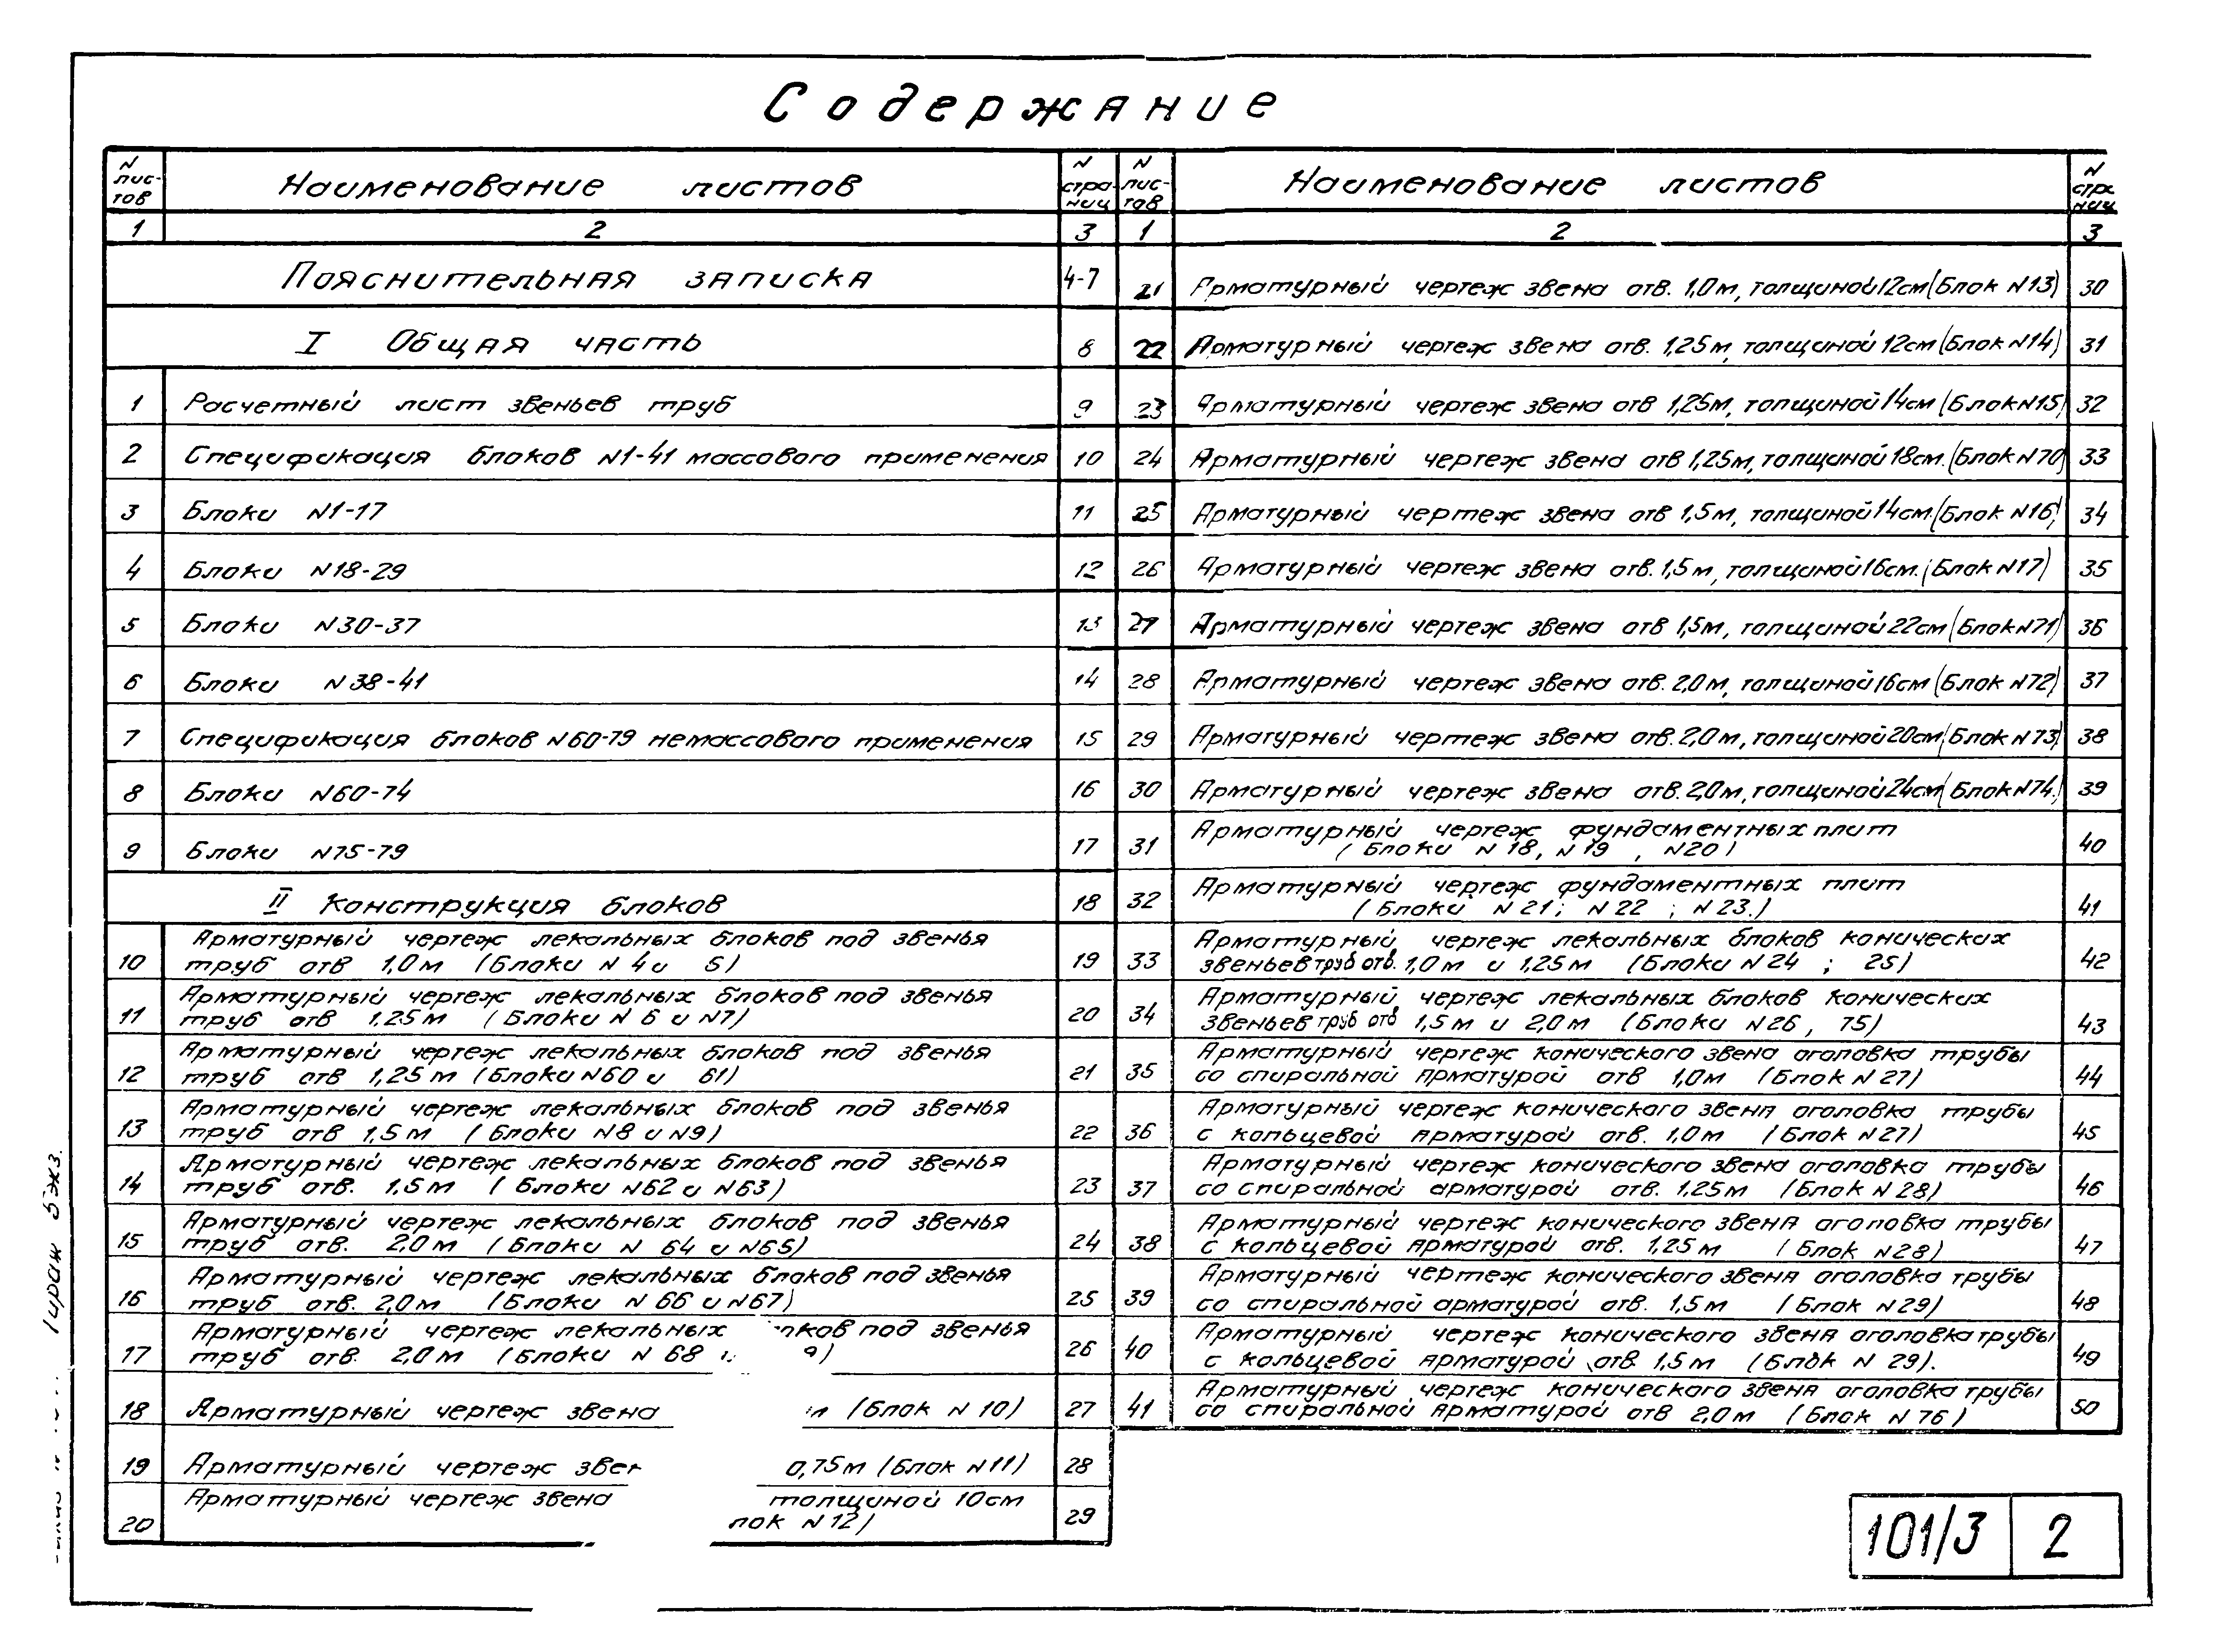 Содержание
N лис-тов Наименование листов N стра-ниц
1 2 3
Пояснительная записка 4-7
I Общая часть 8
1 Расчетный лист звеньев труб 9
2 Спецификация блоков N1-41 массового применения 10
3 Блоки N1-17 11
4 Блоки N18-29 12
5 Блоки N30-37 13
6 Блоки N38-41 14
7 Спецификация блоков N60-79 немассового применения 15
8 Блоки N60-74 16
9 Блоки N75-79 17
II Конструкция блоков 18
10 Арматурный чертеж лекальных блоков под звенья
труб отв 1,0м (Блоки N 4 и 5) 19
11 Арматурный чертеж лекальных блоков под звенья
труб отв 1,25м (Блоки N 6 и N7) 20
12 Арматурный чертеж лекальных блоков под звенья
труб отв 1,25м (Блоки N60 и 61) 21
13 Арматурный чертеж лекальных блоков под звенья
труб отв 1,5м (Блоки N8 и N9) 22
14 Арматурный чертеж лекальных блоков под звенья
труб отв. 1,5м (Блоки N62 и N63) 23
15 Арматурный чертеж лекальных блоков под звенья
труб отв. 2,0м (Блоки N 64 и N65) 24
16 Арматурный чертеж лекальных блоков под звенья
труб отв. 2,0м (Блоки N 66 и N67) 25
17 Арматурный чертеж лекальных под звенья
труб отв. 2,0м (Блоки N 68 26
18 Арматурный чертеж звена (Блок N 10) 27
19 Арматурный чертеж 0,75м (Блок N11) 28
20 Арматурный чертеж звена толщиной 10см
N12) 29
N лис-тов Наименование листов N стра ниц
1 2 3
21 Арматурный чертеж звена отв. 1,0м, толщиной 12см (Блок N13) 30
22 Арматурный чертеж звена отв. 1,25м, толщиной 12см (Блок N14) 31
23 Арматурный чертеж звена отв 1,25м, толщиной 14см (Блок N15) 32
24 Арматурный чертеж звена отв 1,25м, толщиной 18см. (Блок N70) 33
25 Арматурный чертеж звена отв 1,5м, толщиной 14см. (Блок N16) 34
26 Арматурный чертеж звена отв. 1,5м, толщиной 16см. (Блок N17) 35
27 Арматурный чертеж звена отв 1,5м, толщиной 22см (Блок N71) 36
28 Арматурный чертеж звена отв. 2,0м, толщиной 16см (Блок N72) 37
29 Арматурный чертеж звена отв. 2,0м, толщиной 20см (Блок N73) 38
30 Арматурный чертеж звена отв. 2,0м, толщиной 24см (Блок N74.) 39
31 Арматурный чертеж фундаментных плит
(Блоки N 18, N19 , N20) 40
32 Арматурный чертеж фундаментных плит
(Блоки N21; N22 ; N23.) 41
33 Арматурный чертеж лекальных блоков конических
звеньев труб отв. 1,0м и 1,25м (Блоки N24 ; 25) 42
34 Арматурный чертеж лекальных блоков конических
звеньев труб отв 1,5м и 2,0м (Блоки N26, 75) 43
35 Арматурный чертеж конического звена оголовка трубы
со спиральной арматурой отв 1,0м (Блок N27) 44
36 Арматурный чертеж конического звена оголовка трубы
с кольцевой арматурой отв. 1,0м (Блок N27) 45
37 Арматурный чертеж конического звена оголовка трубы
со спиральной арматурой отв. 1,25м (Блок N28) 46
38 Арматурный чертеж конического звена оголовка трубы
с кольцевой арматурой отв. 1,25м (Блок N28) 47
39 Арматурный чертеж конического звена оголовка трубы
со спиральной арматурой отв. 1,5м (Блок N29) 48
40 Арматурный чертеж конического звена оголовка трубы
с кольцевой арматурой отв. 1,5м (Блок N 29). 49
41 Арматурный чертеж конического звена оголовка трубы
со спиральной арматурой отв 2,0м (Блок N76) 50
101/3 2
экз.